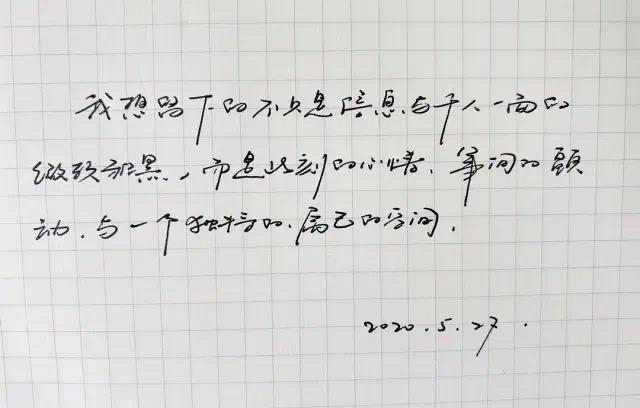 我想留下的不只是信息与千人一面的
微软雅黑，而是此刻的心情、笔间的颤
动、与一个独特的、属己的空间。
2020.5.27.